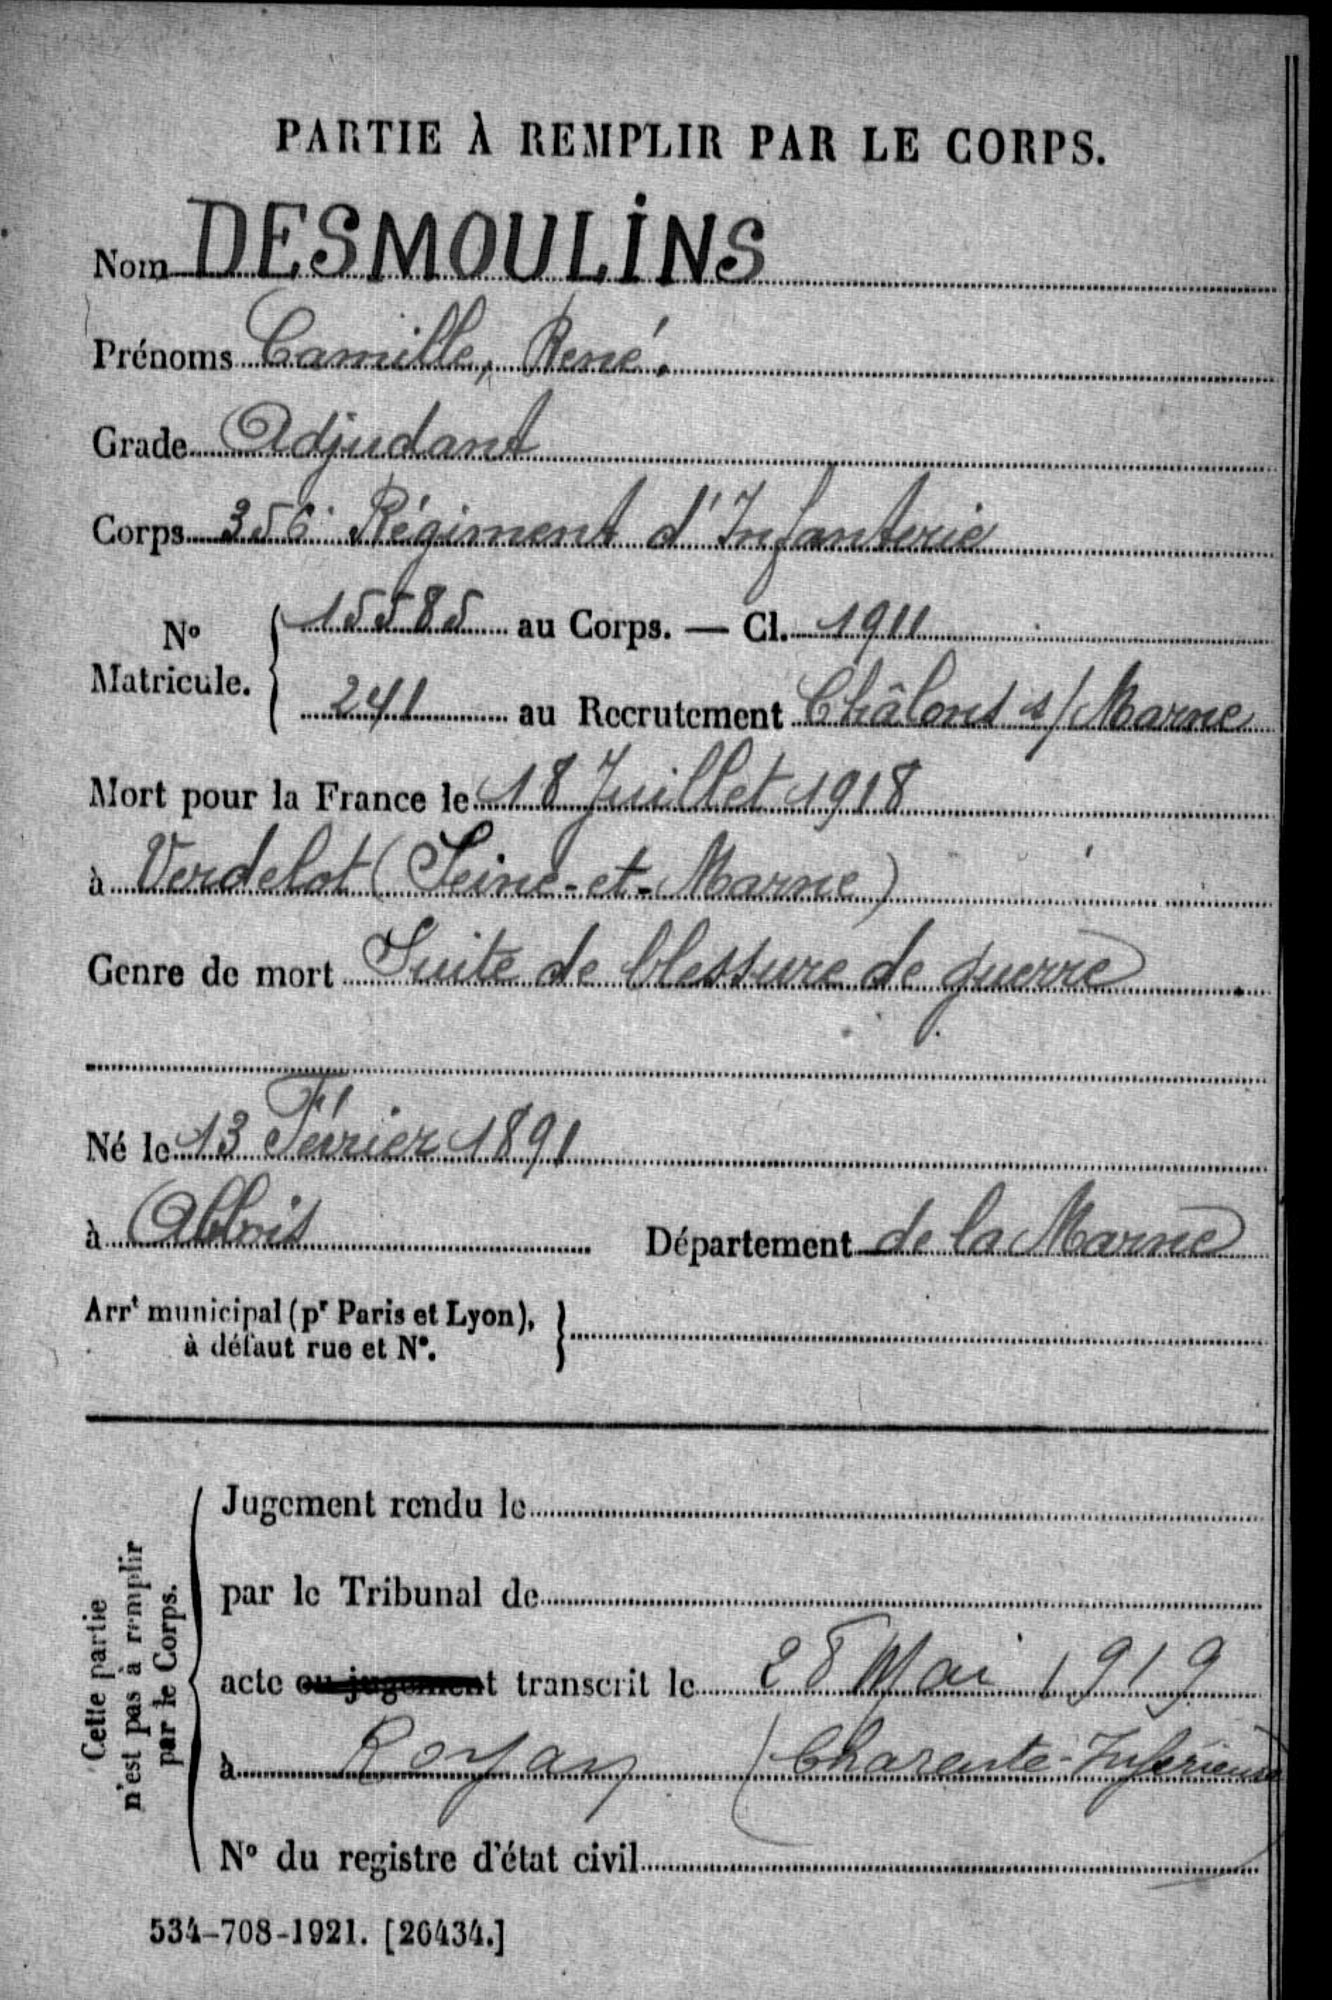 PARTIE À REMPLIR PAR LE CORPS.
Nom DESMOULINS
Prénoms Camille, René.
Grade Adjudant
Corps 356e Régiment d'Infanterie
No Matricule. { 15585 au Corps. — Cl. 1911
241 au Recrutement Châlons s/Marne
Mort pour la France le 18 Juillet 1918
à Verdelot (Seine-et-Marne)
Genre de mort Suite de blessure de guerre
Né le 13 Février 1891
à Ablois Département de la Marne
Arrt municipal (pr Paris et Lyon), à défaut rue et No. }
Cette partie n'est pas à remplir par le Corps.
Jugement rendu le
par le Tribunal de
acte ou jugement transcrit le 28 Mai 1919
à Royan (Charente-Inférieure)
No du registre d'état civil
534-708-1921. [26434.]